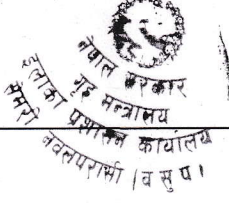 नेपाल सरकार
गृह मन्त्रालय
इलाका प्रशासन कार्यालय
सेमरी
नवलपरासी (व सु प)